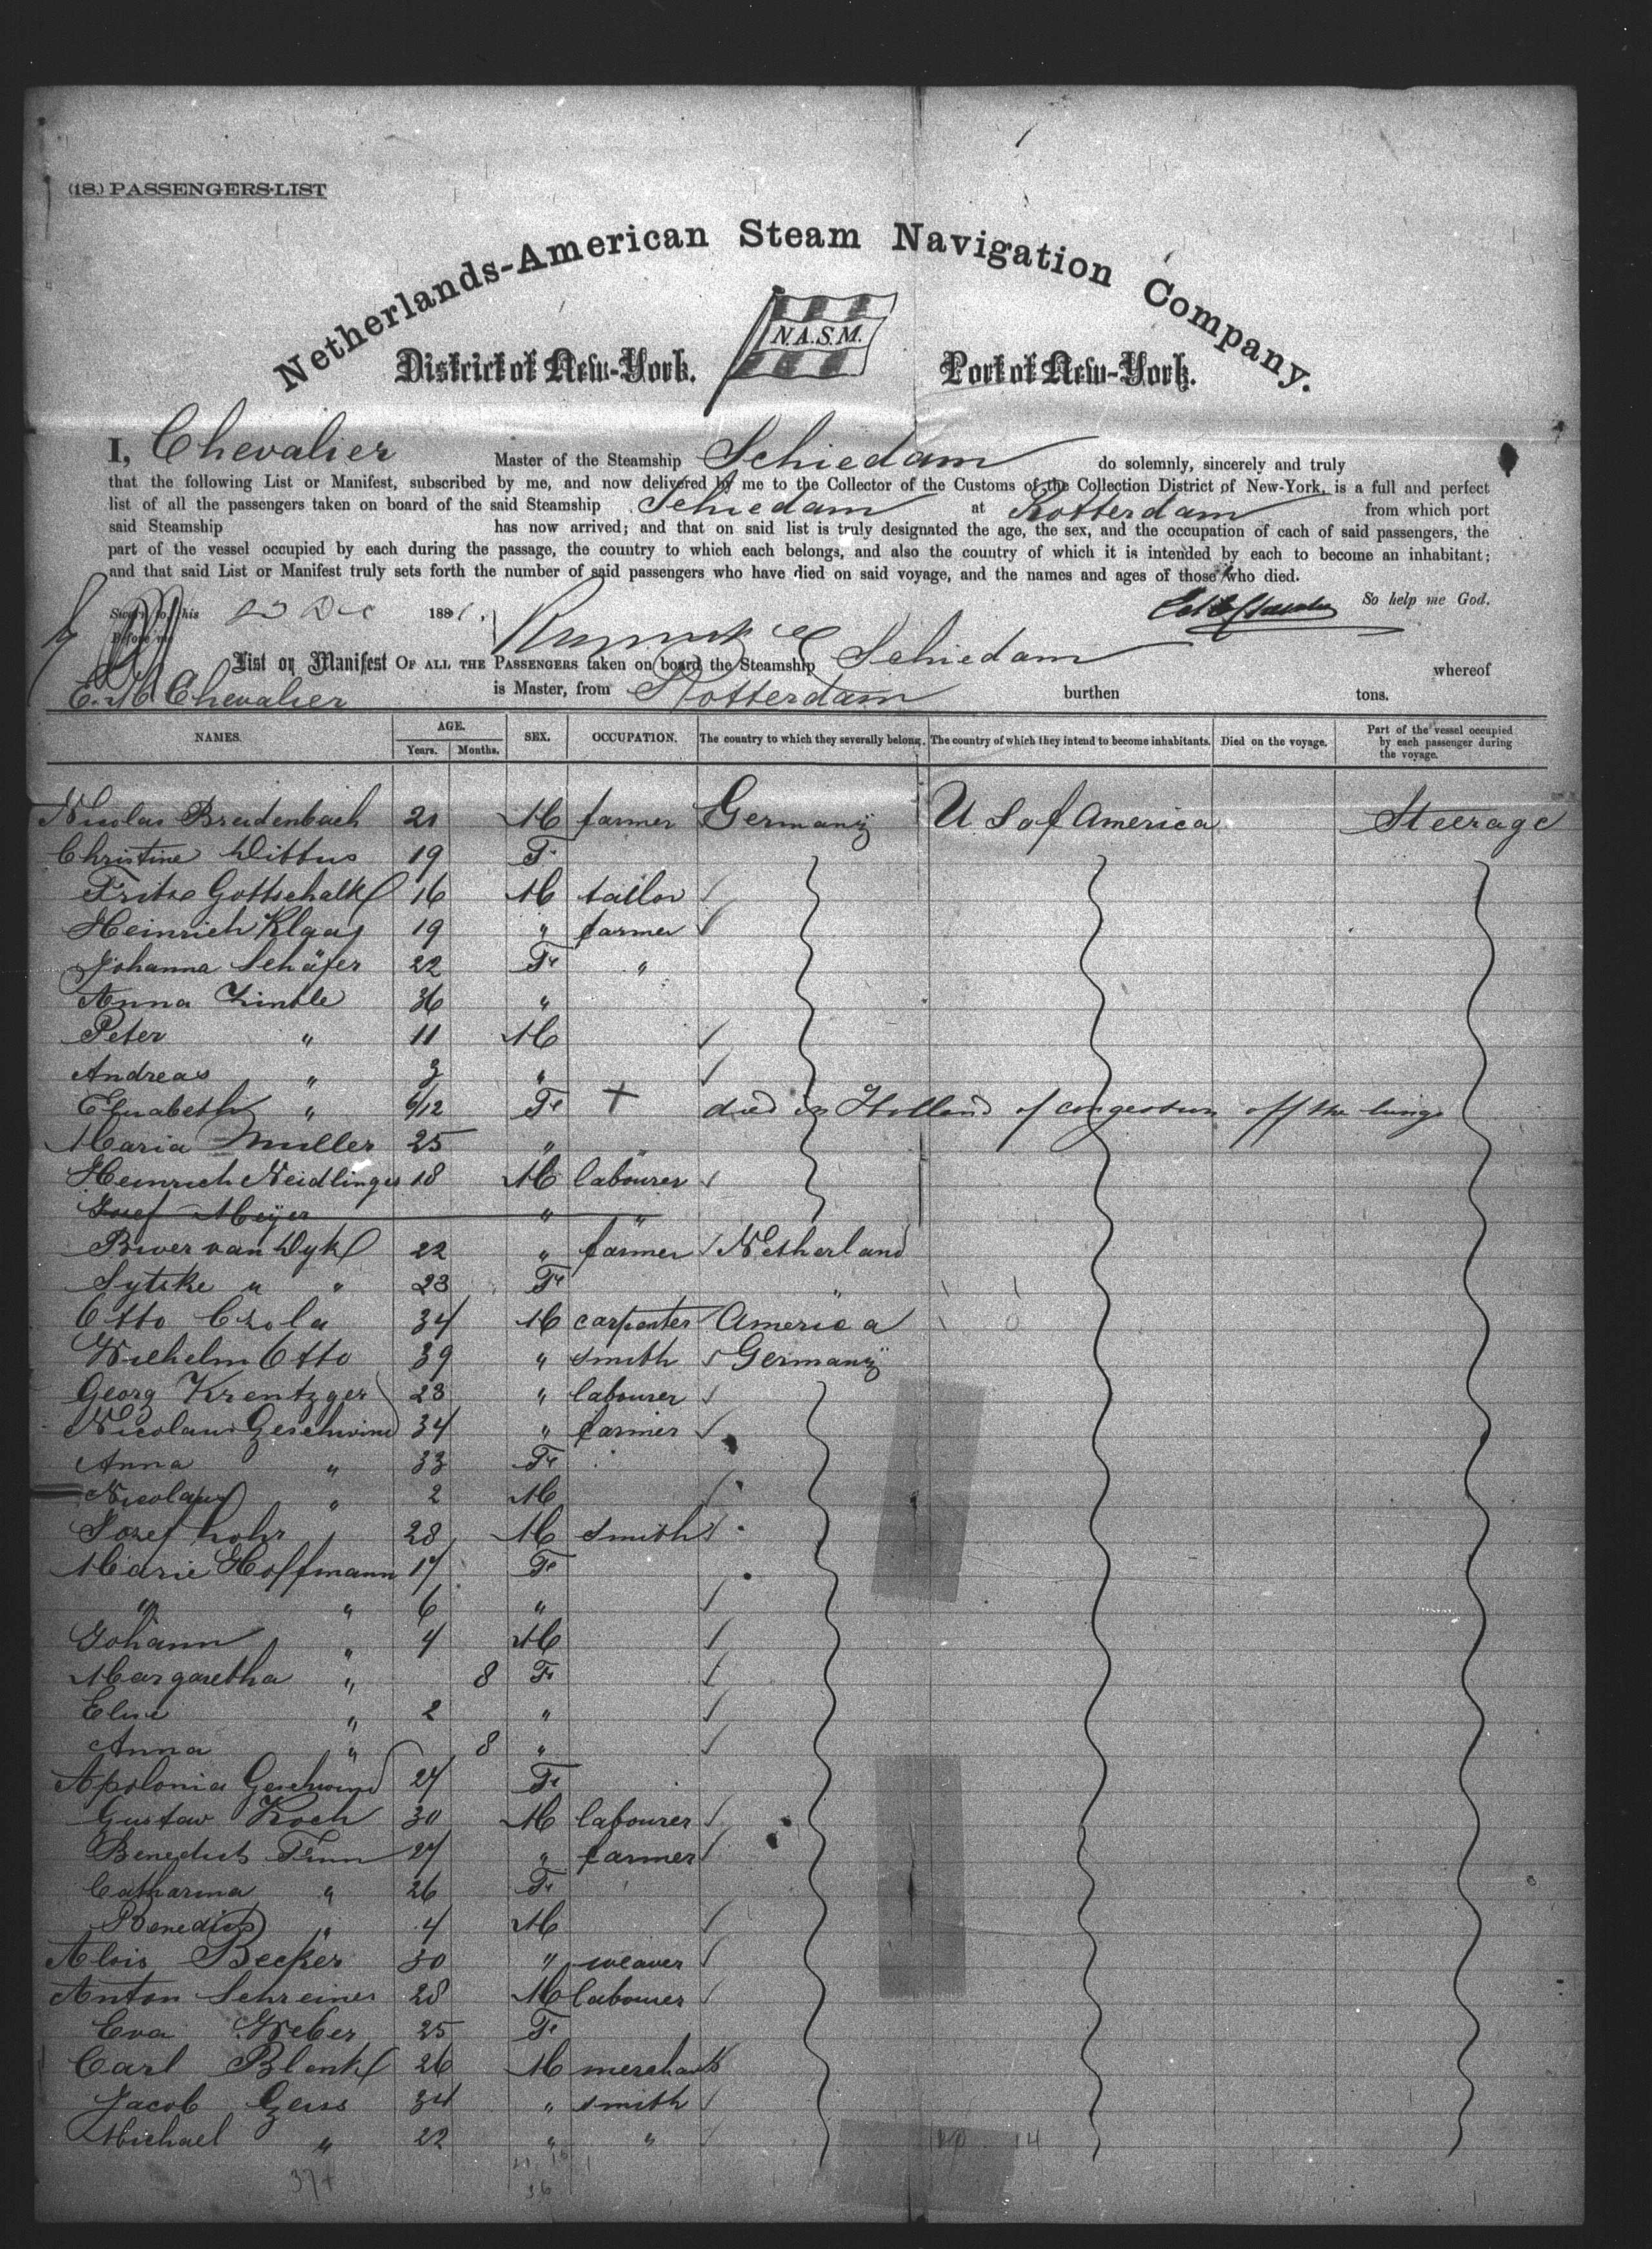 (18.) PASSENGERS-LIST
Netherlands-American Steam Navigation Company.
N.A.S.M.
District of New-York. Port of New-York.
I, Chevalier Master of the Steamship Schiedam do solemnly, sincerely and truly
that the following List or Manifest, subscribed by me, and now delivered by me to the Collector of the Customs of the Collection District of New-York, is a full and perfect
list of all the passengers taken on board of the said Steamship Schiedam at Rotterdam from which port
said Steamship has now arrived; and that on said list is truly designated the age, the sex, and the occupation of each of said passengers, the
part of the vessel occupied by each during the passage, the country to which each belongs, and also the country of which it is intended by each to become an inhabitant;
and that said List or Manifest truly sets forth the number of said passengers who have died on said voyage, and the names and ages of those who died.
So help me God.
Sworn to this 23 Dec 1881.
Before me
List or Manifest OF ALL THE PASSENGERS taken on board the Steamship Schiedam whereof
E. Chevalier is Master, from Rotterdam burthen tons.
NAMES. AGE. Years. Months. SEX. OCCUPATION. The country to which they severally belong. The country of which they intend to become inhabitants. Died on the voyage. Part of the vessel occupied by each passenger during the voyage.
Nicolas Breidenbach 21 M farmer Germany U S of America Steerage
Christine Dittus 19 F
Fritze Gottschalk 16 M tailor
Heinrich Klaas 19 " farmer
Johanna Schäfer 22 Fe "
Anna 36 "
Peter " 11 M
Andreas " 3 "
Elisabeth " 6/12 Fe + died in Holland of congestion off the lungs
Maria Muller 25 "
Heinrich Neidlinger 18 M labourer
Josef Meyer " "
van Dyk 22 " farmer Netherland
Sytske " " 23 Fe
Otto Czola 34 M carpenter America
Wilhelm Otto 39 " smith Germany
Georg Krentzger 23 " labourer
Nicolaus Geschwind 34 " farmer
Anna " 33 Fe
Nicolaus " 2 M
Josef Lohr 28 M smith
Marie Hoffmann 17 Fe
" " 6 "
Johann " 4 M
Margaretha " 8 Fe
Elise " 2 "
Anna " 8 "
Apolonia Geschwind 27 Fe
Gustav Koch 30 M labourer
Benedict 27 " farmer
Catharina " 26 Fe
Benedict " 4 M
Alois Becker 30 " weaver
Anton Schreiner 28 M labourer
Eva Weber 25 Fe
Carl Blank 26 M merchant
Jacob Geiss 34 " smith
Michael " 22 " "